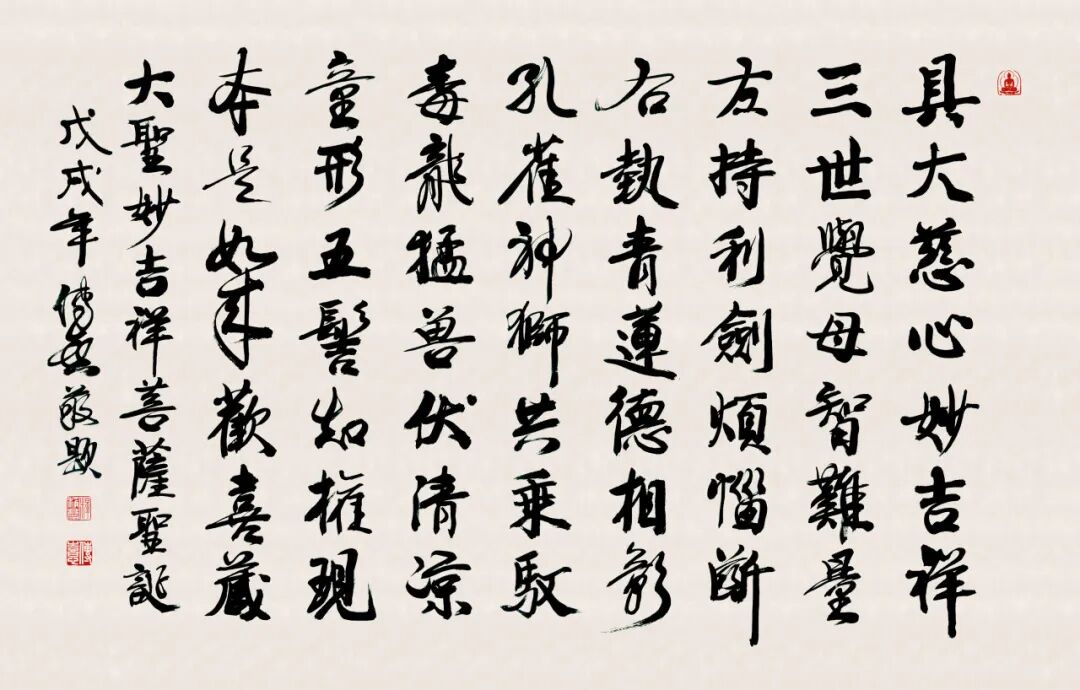 具大慈心妙吉祥
三世覺母智難量
左持利劍煩惱斷
右執青蓮德相彰
孔雀神獅共乘馭
毒龍猛兽伏清凉
童形五髻知權現
本是如来歡喜藏
大聖妙吉祥菩薩聖誕
戊戌年 傳喜敬題